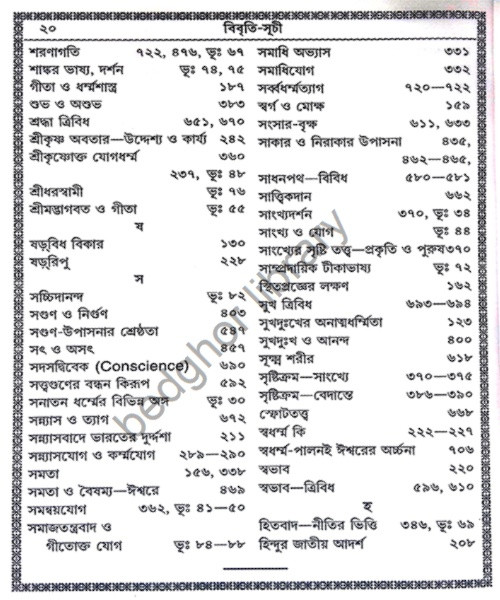 ২০
বিবৃতি-সূচী
শরণাগতি ৭২২, ৪৭৬, ভূঃ ৬৭
শাঙ্কর ভাষ্য, দর্শন ভূঃ ৭৪, ৭৫
গীতা ও ধর্ম্মশাস্ত্র ১৮৭
শুভ ও অশুভ ৩৮৩
শ্রদ্ধা ত্রিবিধ ৬৫১, ৬৭০
শ্রীকৃষ্ণ অবতার—উদ্দেশ্য ও কার্য্য ২৪২
শ্রীকৃষ্ণোক্ত যোগধর্ম্ম ৩৬০
২৩৭, ভূঃ ৪৮
শ্রীধরস্বামী ভূঃ ৭৬
শ্রীমদ্ভাগবত ও গীতা ভূঃ ৫৫
ষ
ষড়্‌বিধ বিকার ১৩০
ষড়্‌রিপু ২২৮
স
সচ্চিদানন্দ ভূঃ ৮২
সগুণ ও নির্গুণ ৪০৩
সগুণ-উপাসনার শ্রেষ্ঠতা ৫৪৭
সৎ ও অসৎ ৪৫৭
সদসদ্বিবেক (Conscience) ৬৯০
সত্ত্বগুণের বন্ধন কিরূপ ৫৯২
সনাতন ধর্ম্মের বিভিন্ন অঙ্গ ভূঃ ৩০
সন্ন্যাস ও ত্যাগ ৬৭২
সন্ন্যাসবাদে ভারতের দুর্দ্দশা ২১১
সন্ন্যাসযোগ ও কর্ম্মযোগ ২৮৯—২৯০
সমতা ১৫৬, ৩৩৮
সমতা ও বৈষম্য—ঈশ্বরে ৪৬৯
সমন্বয়যোগ ৩৬২, ভূঃ ৪১—৫০
সমাজতন্ত্রবাদ ও
গীতোক্ত যোগ ভূঃ ৮৪—৮৮
সমাধি অভ্যাস ৩৩১
সমাধিযোগ ৩৩২
সর্ব্বধর্ম্মত্যাগ ৭২০—৭২২
স্বর্গ ও মোক্ষ ১৫৯
সংসার-বৃক্ষ ৬১১, ৬৩৩
সাকার ও নিরাকার উপাসনা ৪৩৫,
৪৬২—৪৬৫,
সাধনপথ—বিবিধ ৫৮০—৫৮১
সাত্ত্বিকদান ৬৬২
সাংখ্যদর্শন ৩৭০, ভূঃ ৩৪
সাংখ্য ও যোগ ভূঃ ৪৪
সাংখ্যের সৃষ্টি তত্ত্ব—প্রকৃতি ও পুরুষ৩৭০
সাম্প্রদায়িক টীকাভাষ্য ভূঃ ৭২
স্থিতপ্রজ্ঞের লক্ষণ ১৬২
সুখ ত্রিবিধ ৬৯৩—৬৯৪
সুখদুঃখের অনাত্মধর্ম্মিতা ১২৩
সুখদুঃখ ও আনন্দ ৪০০
সূক্ষ্ম শরীর ৬১৮
সৃষ্টিক্রম—সাংখ্যে ৩৭০—৩৭৫
সৃষ্টিক্রম—বেদান্তে ৩৮৬—৩৯০
স্ফোটতত্ত্ব ৬৬৮
স্বধর্ম্ম কি ২২২—২২৭
স্বধর্ম্ম-পালনই ঈশ্বরের অর্চ্চনা ৭০৬
স্বভাব ২২০
স্বভাব—ত্রিবিধ ৫৯৬, ৬১০
হ
হিতবাদ—নীতির ভিত্তি ৩৪৬, ভূঃ ৬৯
হিন্দুর জাতীয় আদর্শ ২০৮
bedghor library